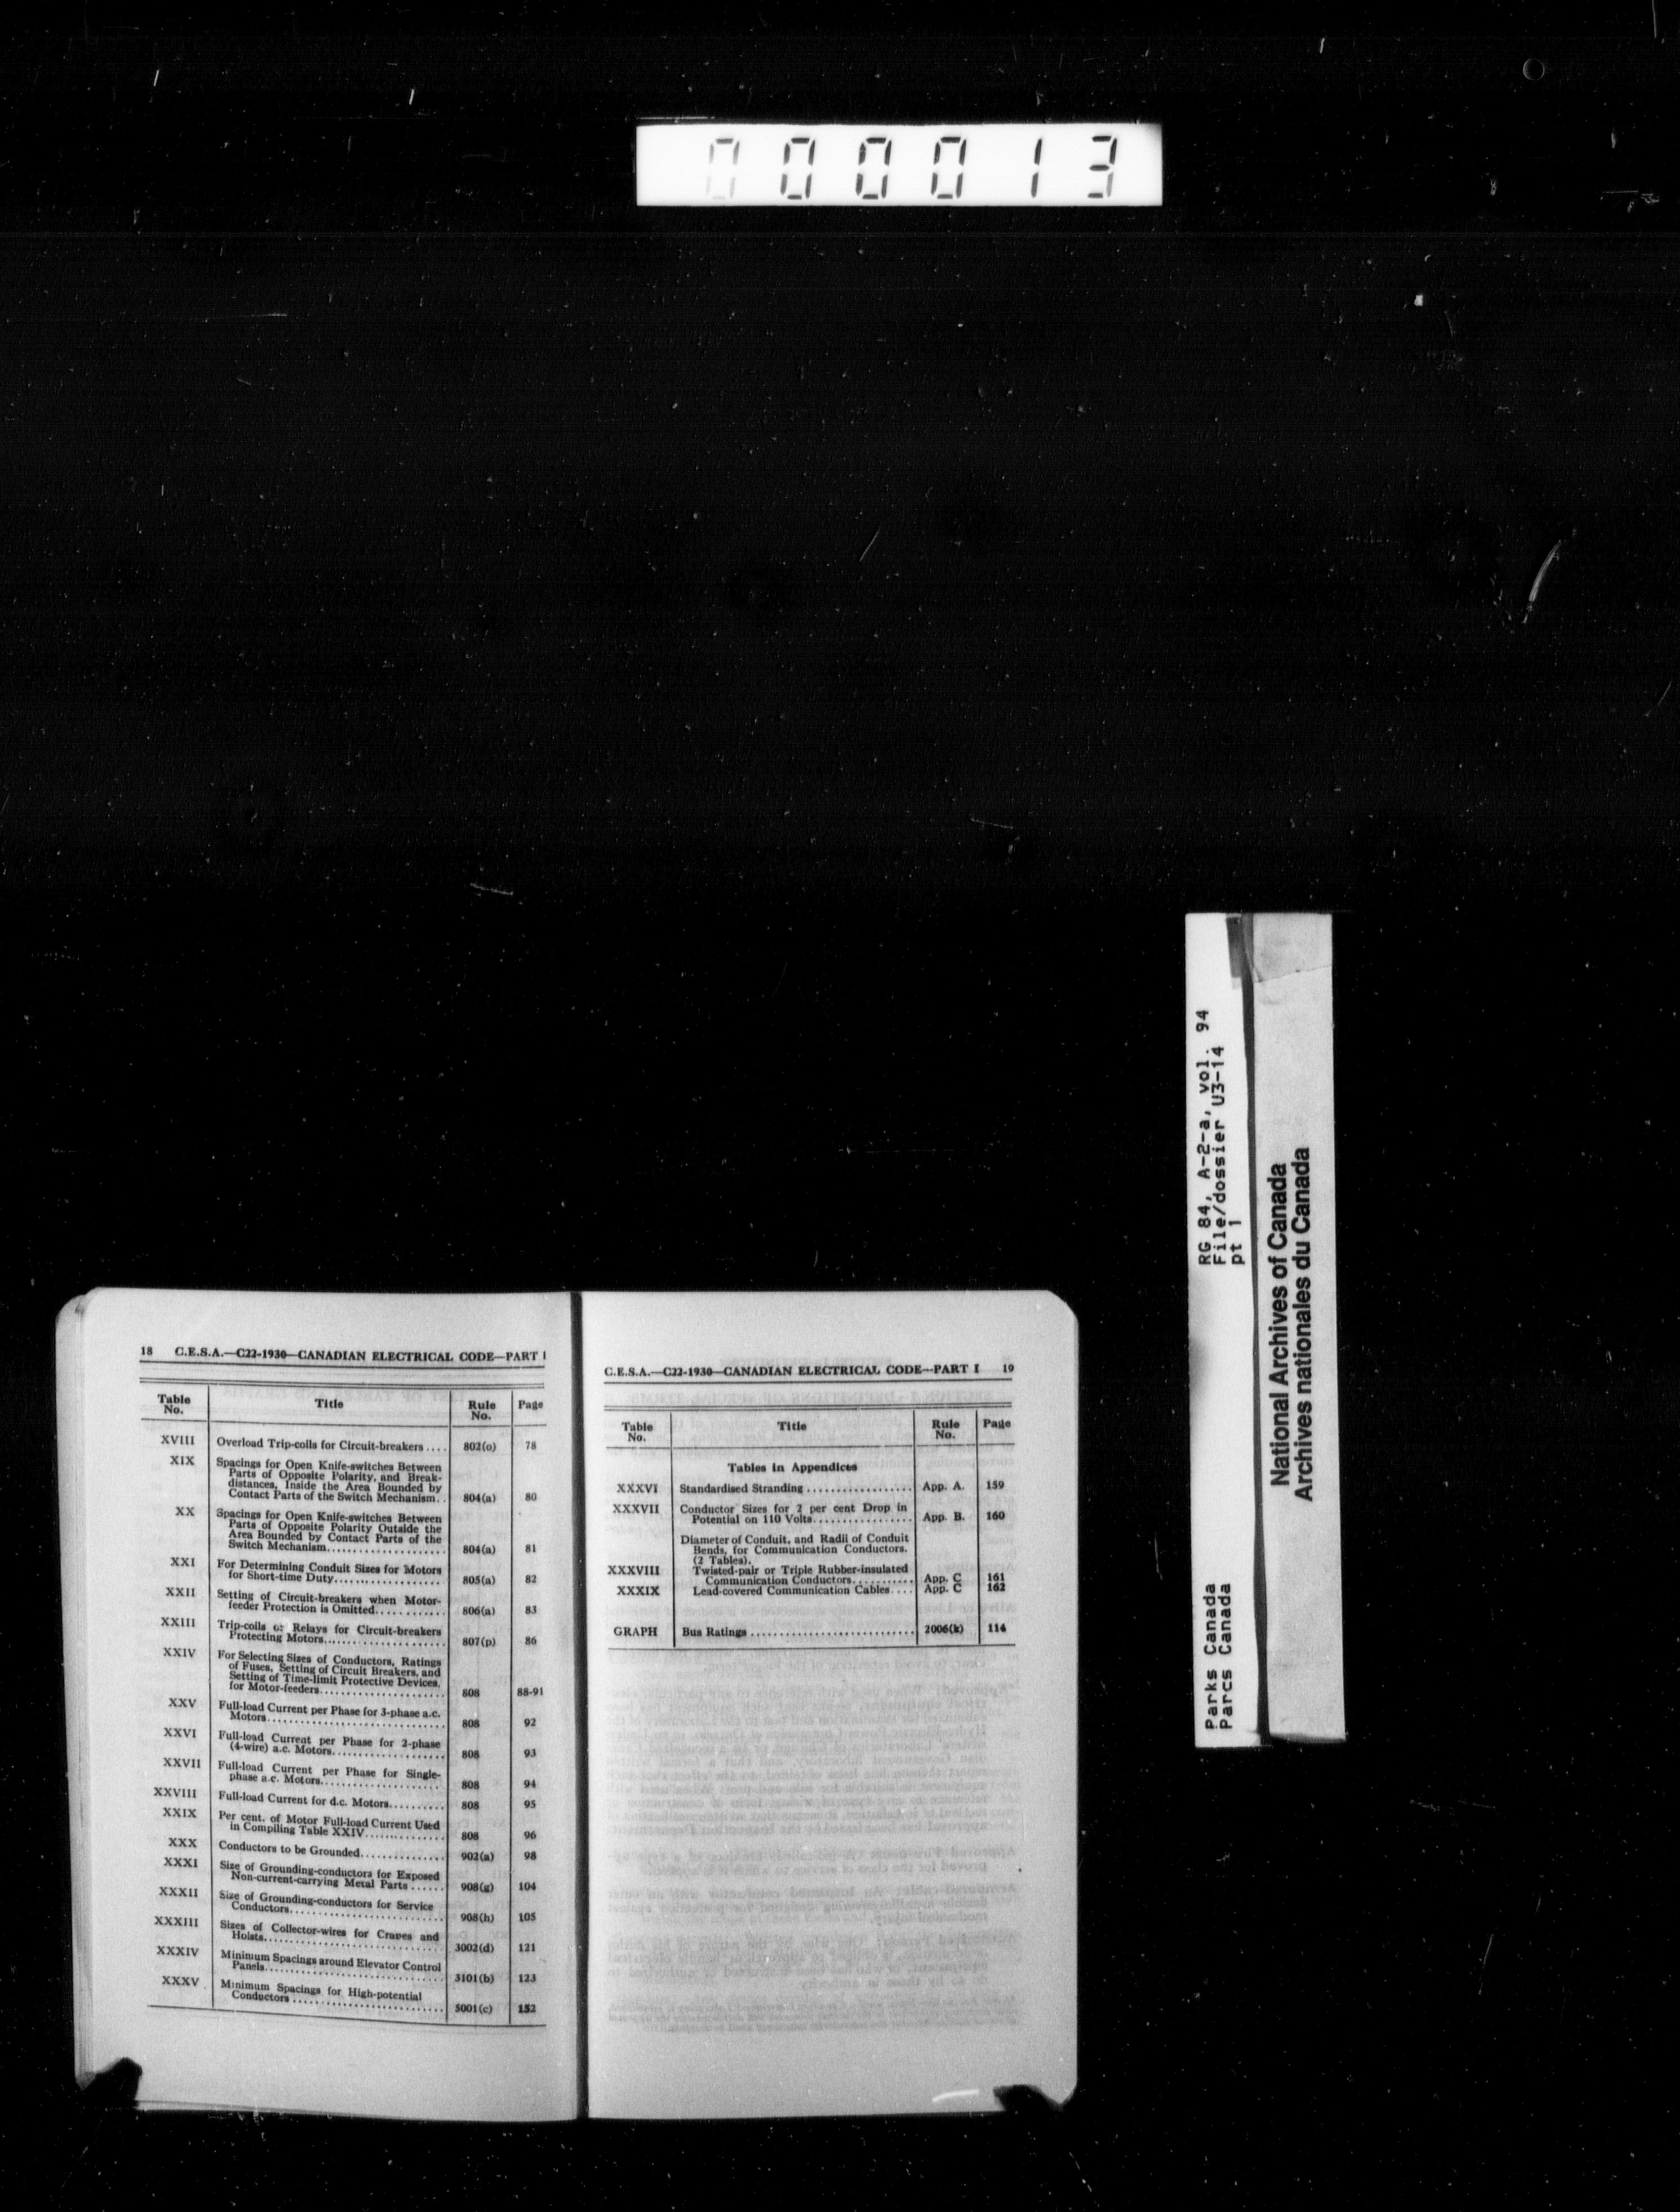 000013
18 C.E.S.A.—C22-1930—CANADIAN ELECTRICAL CODE—PART I
Table No. Title Rule No. Page
XVIII Overload Trip-coils for Circuit-breakers .... 802(o) 78
XIX Spacings for Open Knife-switches Between
Parts of Opposite Polarity, and Break-
distances, Inside the Area Bounded by
Contact Parts of the Switch Mechanism.. 804(a) 80
XX Spacings for Open Knife-switches Between
Parts of Opposite Polarity Outside the
Area Bounded by Contact Parts of the
Switch Mechanism.................... 804(a) 81
XXI For Determining Conduit Sizes for Motors
for Short-time Duty.................. 805(a) 82
XXII Setting of Circuit-breakers when Motor-
feeder Protection is Omitted............ 806(a) 83
XXIII Trip-coils or Relays for Circuit-breakers
Protecting Motors..................... 807(p) 86
XXIV For Selecting Sizes of Conductors, Ratings
of Fuses, Setting of Circuit Breakers, and
Setting of Time-limit Protective Devices,
for Motor-feeders...................... 808 88-91
XXV Full-load Current per Phase for 3-phase a.c.
Motors............................... 808 92
XXVI Full-load Current per Phase for 2-phase
(4-wire) a.c. Motors................... 808 93
XXVII Full-load Current per Phase for Single-
phase a.c. Motors..................... 808 94
XXVIII Full-load Current for d.c. Motors.......... 808 95
XXIX Per cent. of Motor Full-load Current Used
in Compiling Table XXIV.............. 808 96
XXX Conductors to be Grounded............... 902(a) 98
XXXI Size of Grounding-conductors for Exposed
Non-current-carrying Metal Parts ...... 908(g) 104
XXXII Size of Grounding-conductors for Service
Conductors........................... 908(h) 105
XXXIII Sizes of Collector-wires for Cranes and
Hoists............................... 3002(d) 121
XXXIV Minimum Spacings around Elevator Control
Panels............................... 3101(b) 123
XXXV Minimum Spacings for High-potential
Conductors .......................... 5001(c) 152
C.E.S.A.—C22-1930—CANADIAN ELECTRICAL CODE—PART I 19
Table No. Title Rule No. Page
Tables in Appendices
XXXVI Standardised Stranding .................. App. A. 159
XXXVII Conductor Sizes for 2 per cent Drop in
Potential on 110 Volts................. App. B. 160
Diameter of Conduit, and Radii of Conduit
Bends, for Communication Conductors.
(2 Tables).
XXXVIII Twisted-pair or Triple Rubber-insulated
Communication Conductors........... App. C 161
XXXIX Lead-covered Communication Cables.... App. C 162
GRAPH Bus Ratings ............................ 2006(k) 114
RG 84, A-2-a, vol. 94
File/dossier U3-14
pt 1
Parks Canada
Parcs Canada
National Archives of Canada
Archives nationales du Canada